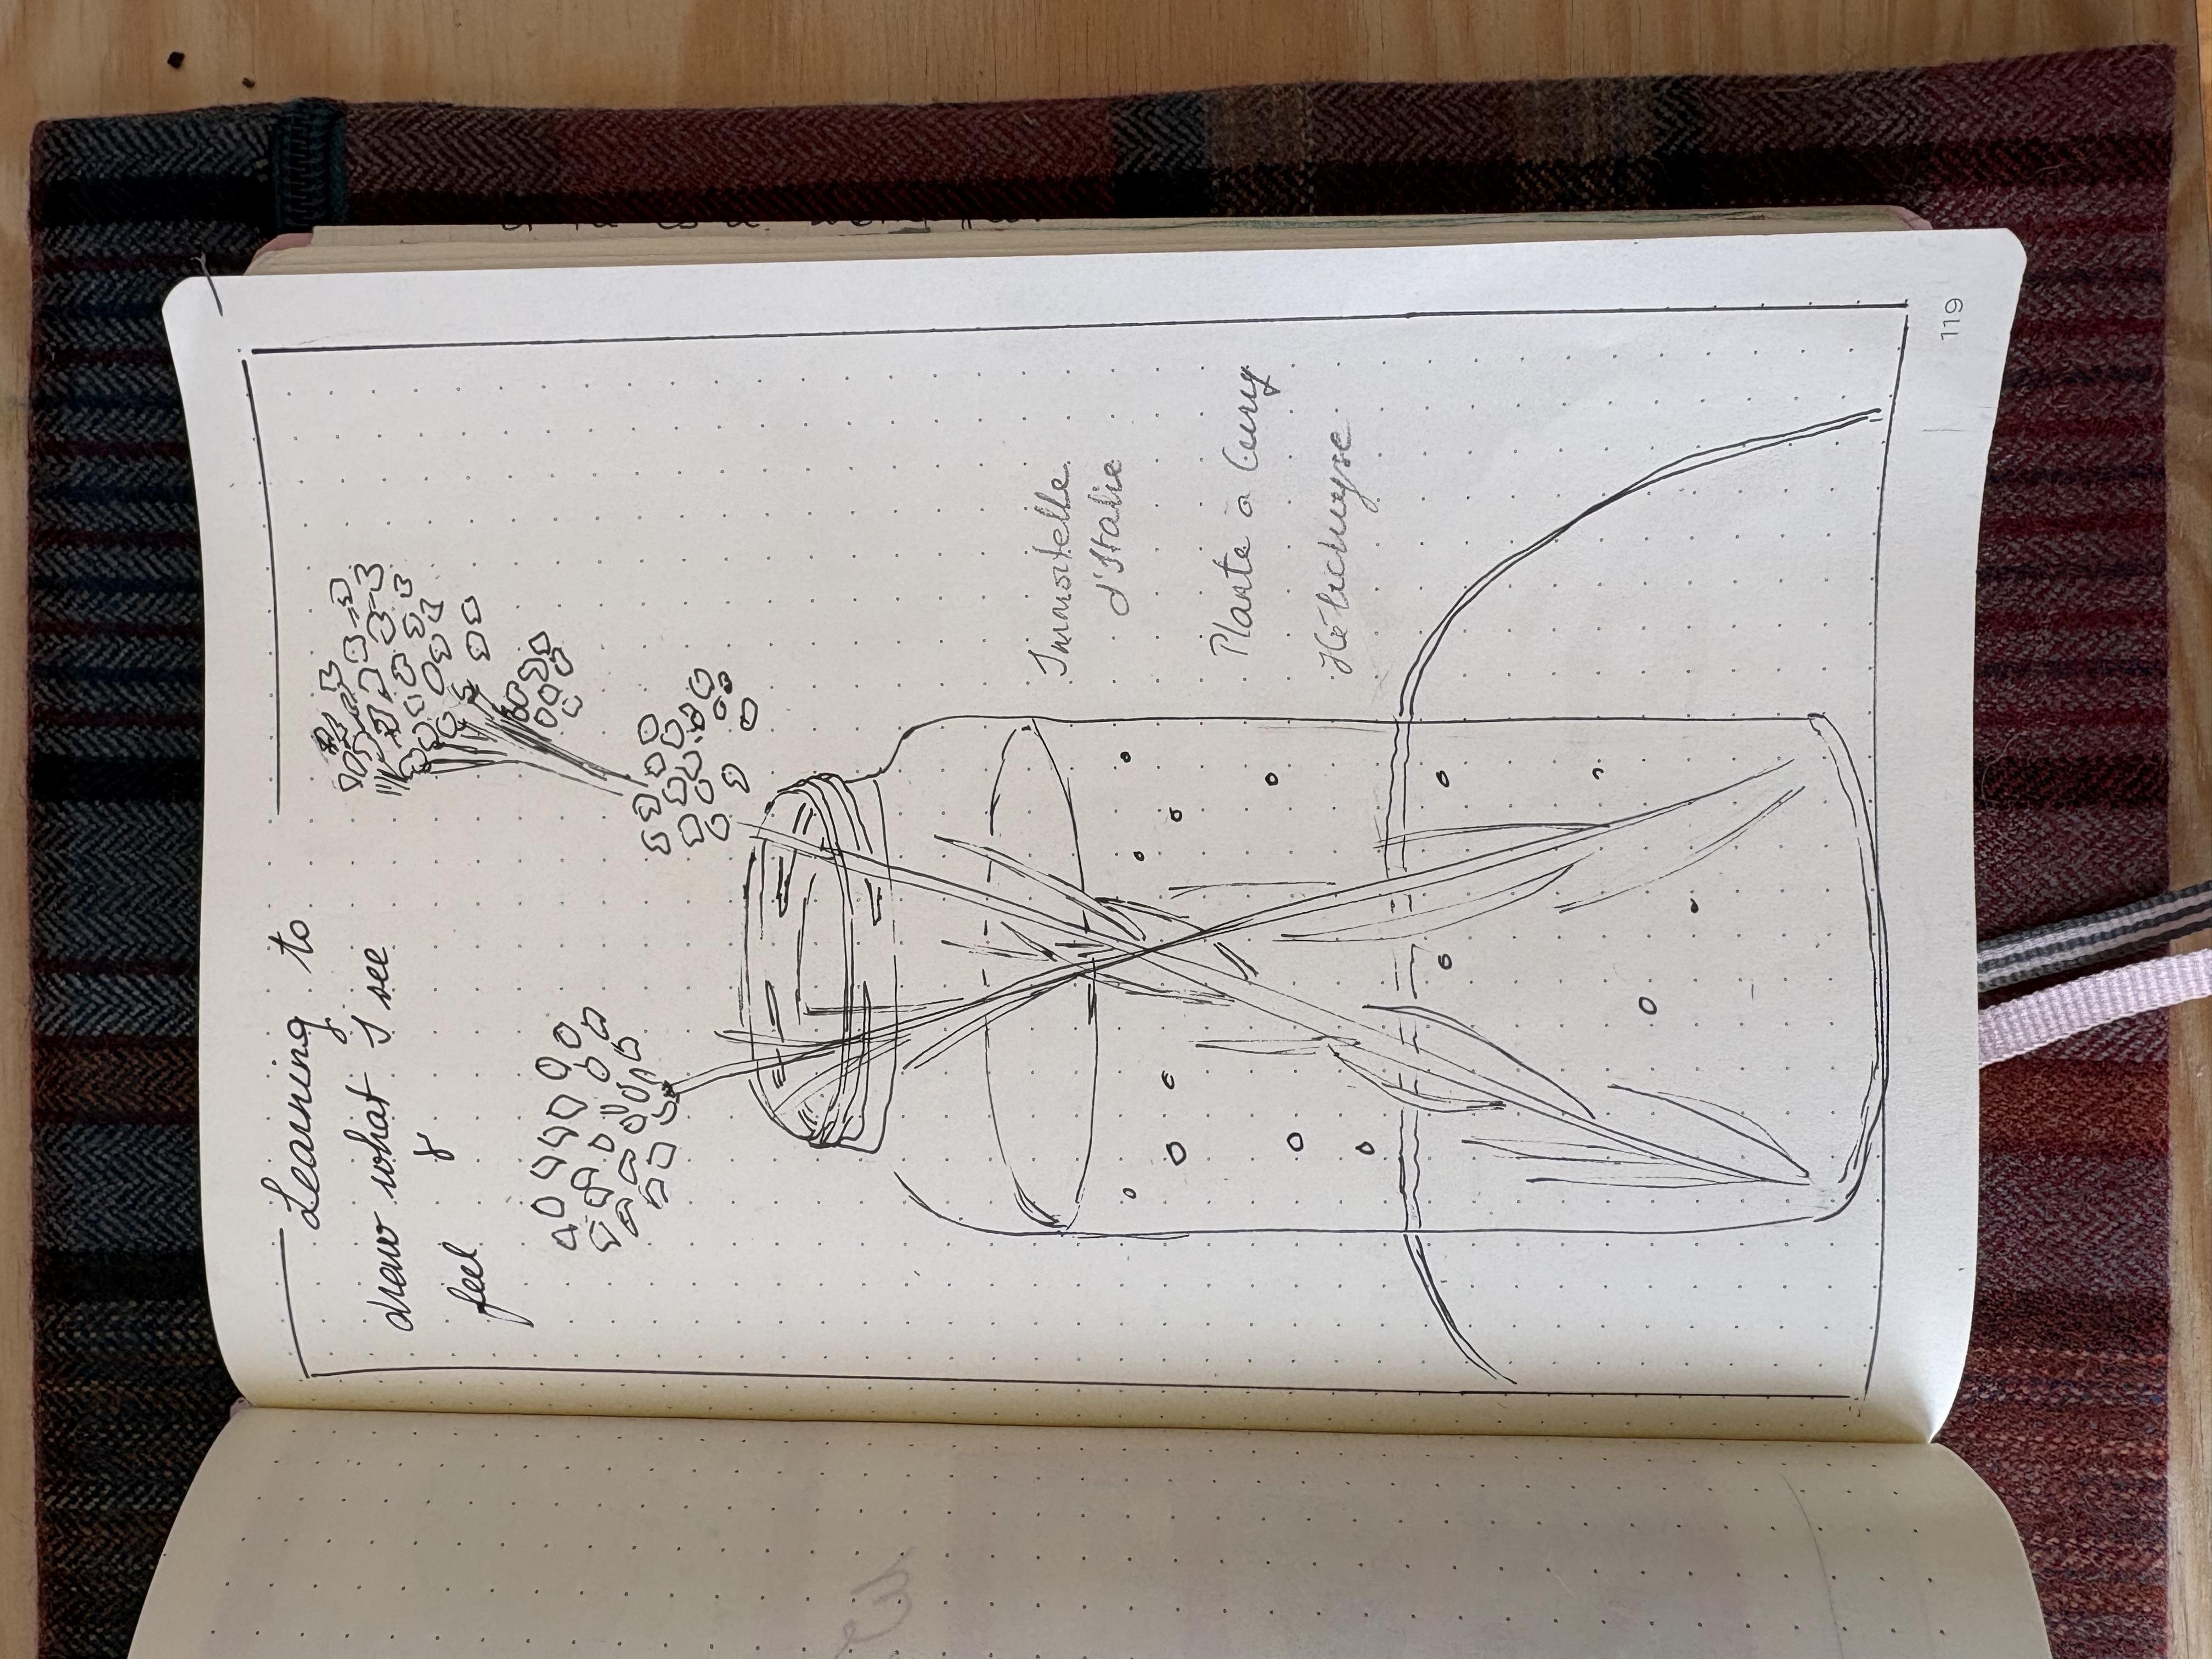 Learning to
draw what I see
&
feel
Immortelle
d'Italie
Plante à Curry
Hélichryse
119